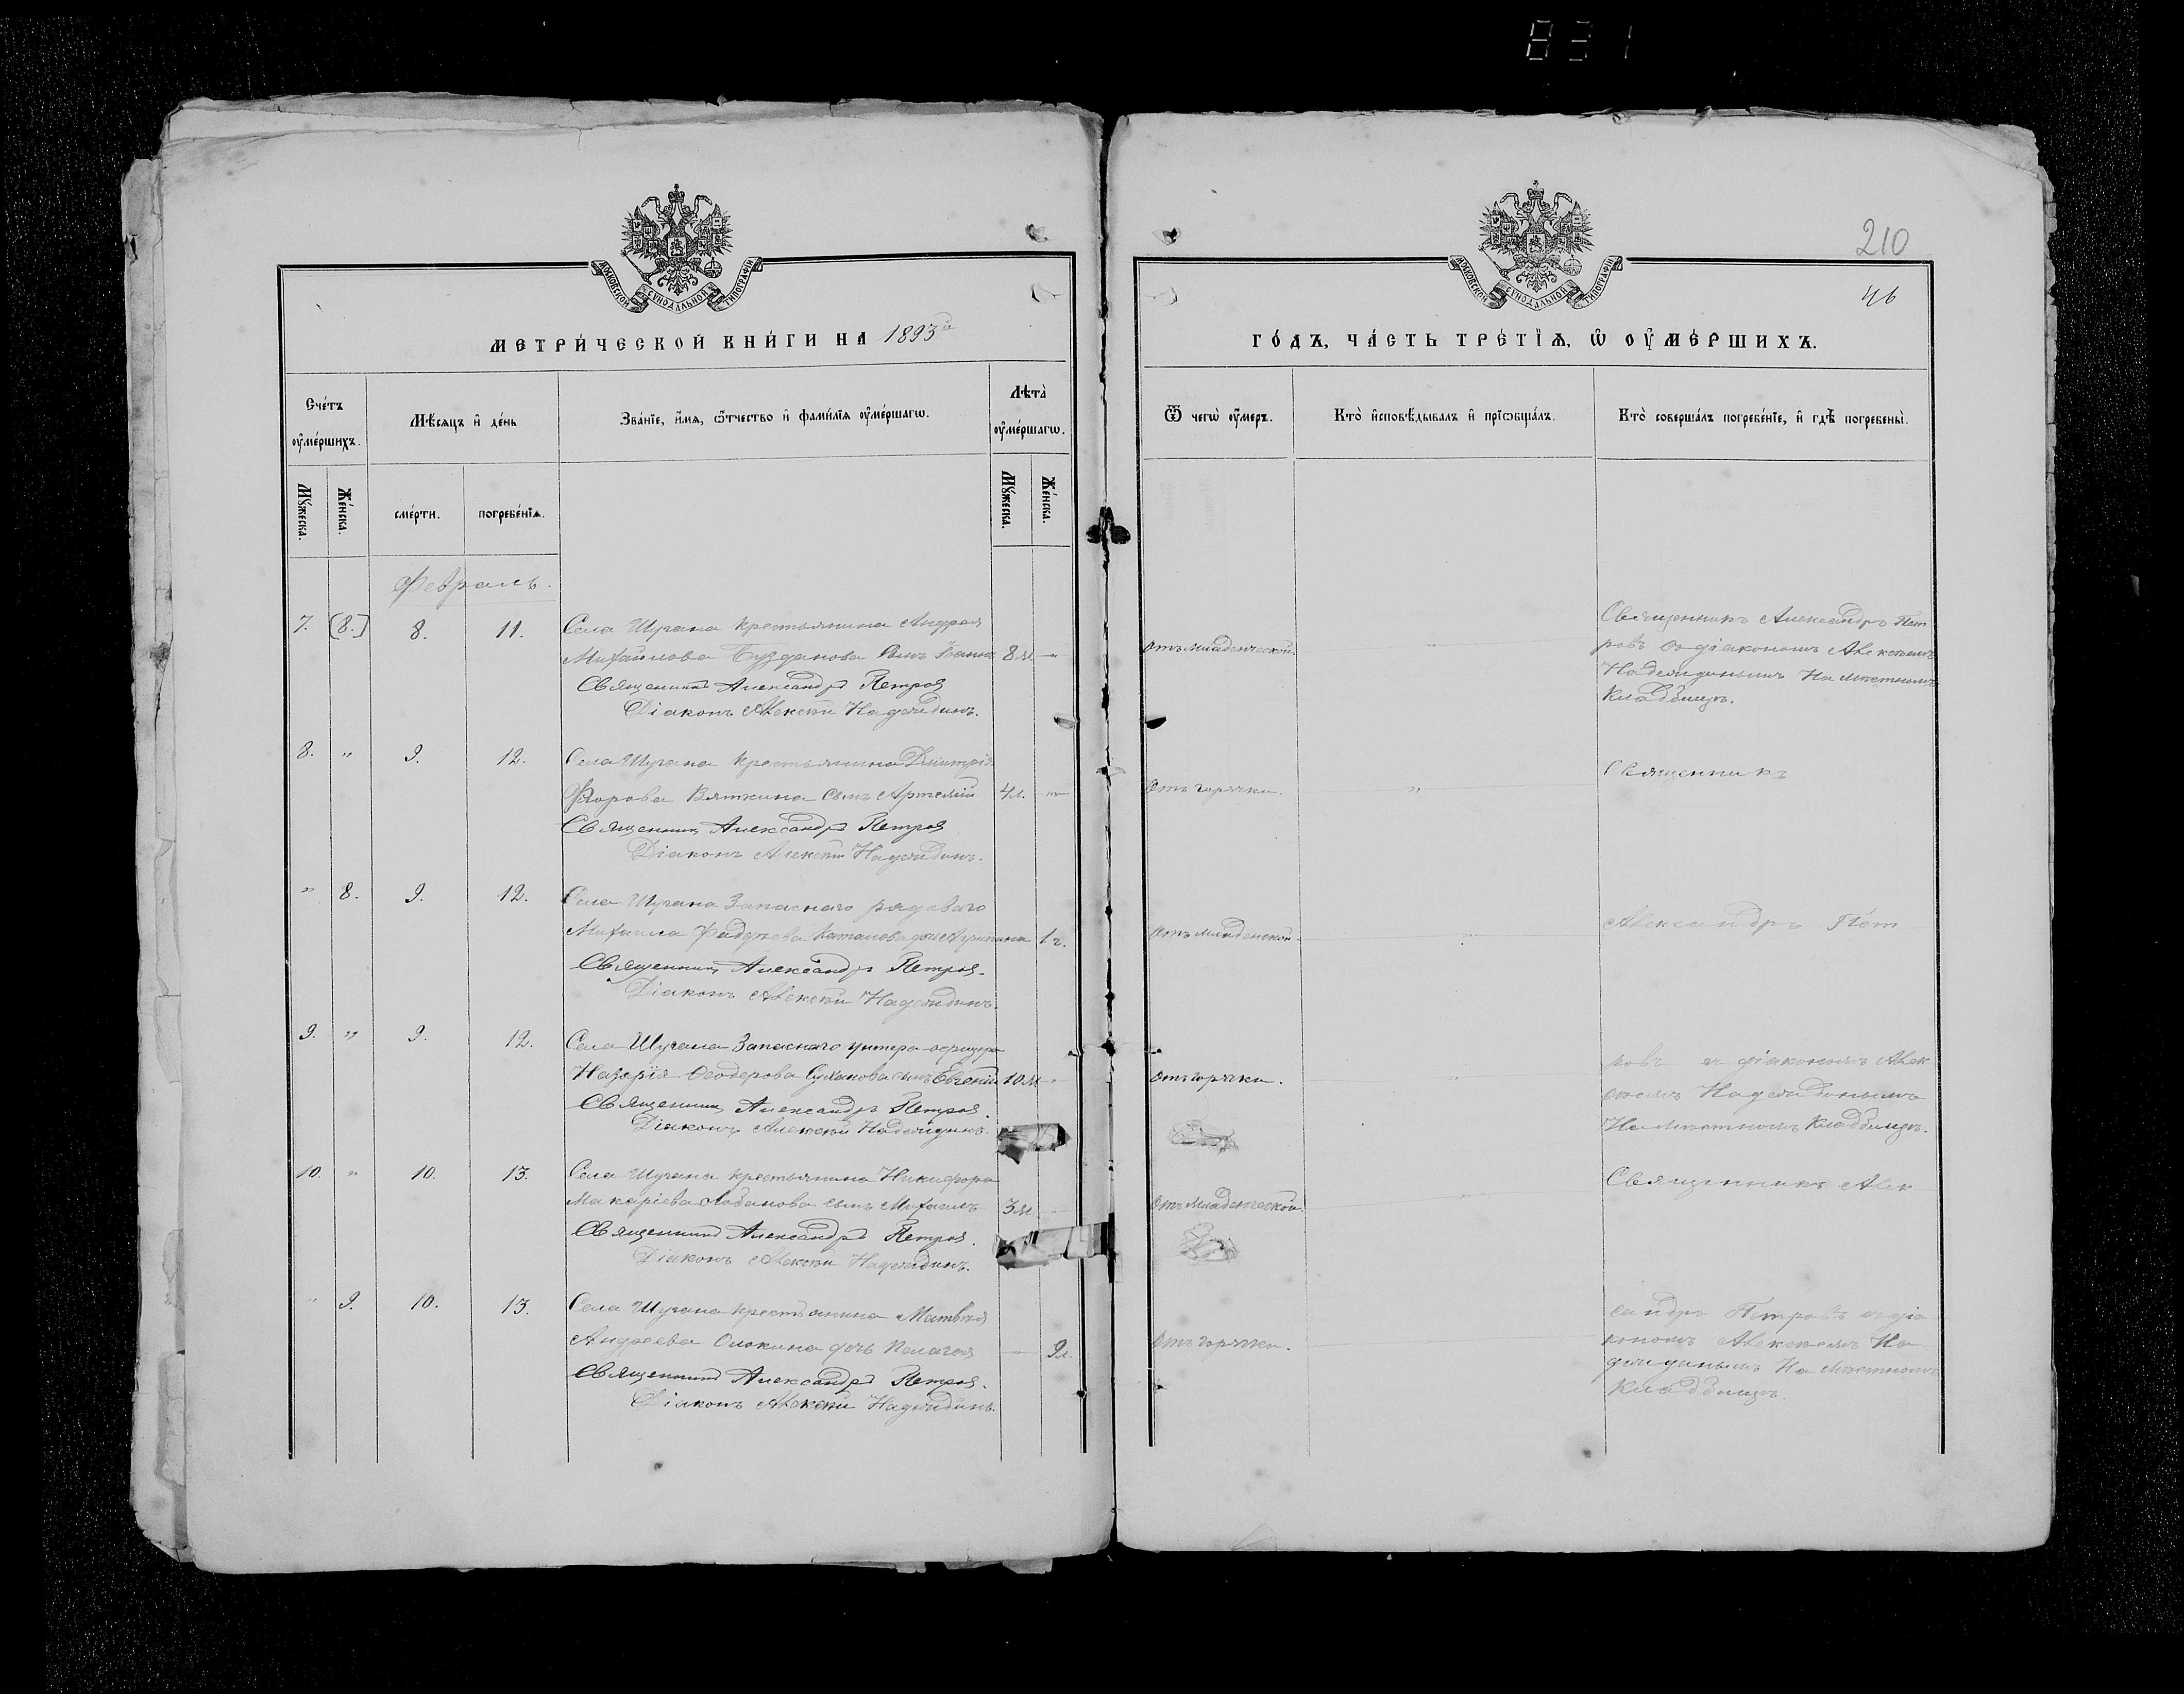 831
210
46
МОСКОВСКОЙ СѴНОДАЛЬНОЙ ТИПОГРАФІИ
МОСКОВСКОЙ СѴНОДАЛЬНОЙ ТИПОГРАФІИ
МЕТРИ́ЧЕСКОЙ КНИ́ГИ НА 1893й
ГО́ДЪ, ЧА́СТЬ ТРЕ́ТІѦ, Ѡ҆ ОУ҆МЕ́РШИХЪ.
Сче́тъ оу҆ме́ршихъ.
Мѣ́сяцъ и҆ де́нь
Зва́нїе, и҆́мѧ, ѻ҆́тчество и҆ фами́лїѧ оу҆ме́ршагѡ.
Лѣ́та̀ оу҆ме́ршагѡ.
Ѿ чегѡ̀ оу҆́меръ.
Кто̀ и҆сповѣ́дывалъ и҆ прїѡбща́лъ.
Кто̀ соверша́лъ погребе́нїе, и҆ гдѣ̀ погребены̀.
Мꙋ́жеска.
Же́нска.
сме́рти.
погребе́нїѧ.
Мꙋ́жеска.
Же́нска.
Февраль.
7. (8.) 8. 11. Села Шугана крестьянина Андрея
Михайлова Бузданова сынъ Іоаннъ 8 м. —
Священникъ Александръ Петровъ
Діаконъ Алексѣй Надеждинъ.
Отъ младенческой.
Священникъ Александръ Пет
ровъ съ діакономъ Алексѣемъ
Надеждинымъ На мѣстномъ
кладбищѣ.
8. „ 9. 12. Села Шугана крестьянина Димитрія
Фролова Вяткина сынъ Артемій 4 л. „
Священникъ Александръ Петровъ
Діаконъ Алексѣй Надеждинъ.
Отъ горячки. „
Священникъ
„ 8. 9. 12. Села Шугана Запаснаго рядоваго
Михаила Фадѣева дочь Агрипина 1 г.
Священникъ Александръ Петровъ.
Діаконъ Алексѣй Надеждинъ.
Отъ младенской. „
Александръ Пет
9. „ 9. 12. Села Шугана Запаснаго унтеръ-офицера
Назарія Ѳеодорова Суханова сынъ Евгеній 10 м „
Священникъ Александръ Петровъ.
Діаконъ Алексѣй Надеждинъ.
Отъ горячки. „
ровъ съ діакономъ Алек
сѣемъ Надеждинымъ
На мѣстномъ кладбищѣ.
10. „ 10. 13. Села Шугана крестьянина Никифора
Макаріева Лобанова сынъ Михаилъ 3 м. —
Священникъ Александръ Петровъ.
Діаконъ Алексѣй Надеждинъ.
Отъ младенческой. „
Священникъ Алек
„ 9. 10. 13. Села Шугана крестьянина Матвѣя
Андреева дочь Пелагея — 9 л.
Священникъ Александръ Петровъ.
Діаконъ Алексѣй Надеждинъ.
Отъ горячки.
сандръ Петровъ съ діа
кономъ Алексѣемъ На
деждинымъ На мѣстномъ
кладбищѣ.